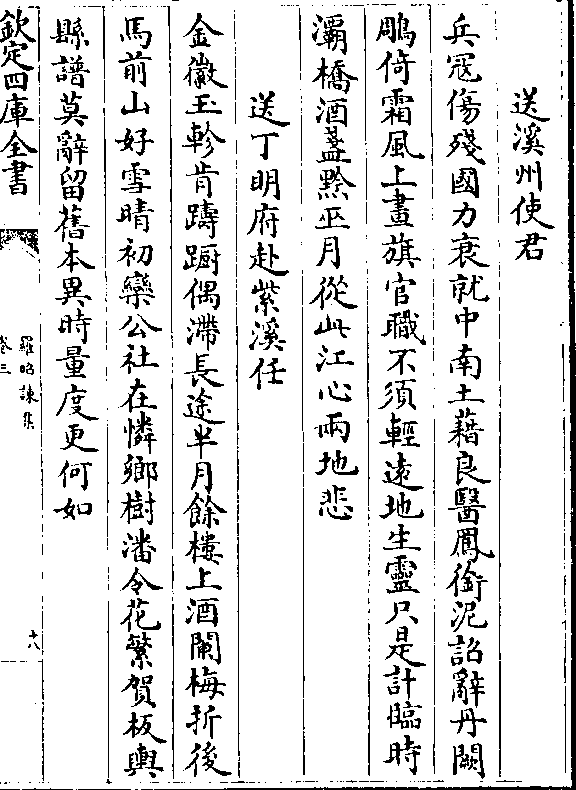 送溪州使君
兵冦傷殘國力衰就中南土藉良醫鳳銜泥詔辭丹闕
鵰倚霜風上畫旗官職不須輕逺地生靈只是計臨時
灞橋酒醆黔巫月從此江心兩地悲
送丁明府赴紫溪任
金徽玉軫肯躊蹰偶滯長途半月餘樓上酒闌梅折後
馬前山好雪晴初欒公社在憐鄉樹潘令花繁賀板輿
縣譜莫辭留舊本異時量度更何如
欽定四庫全書
羅昭諫集
卷三
十八